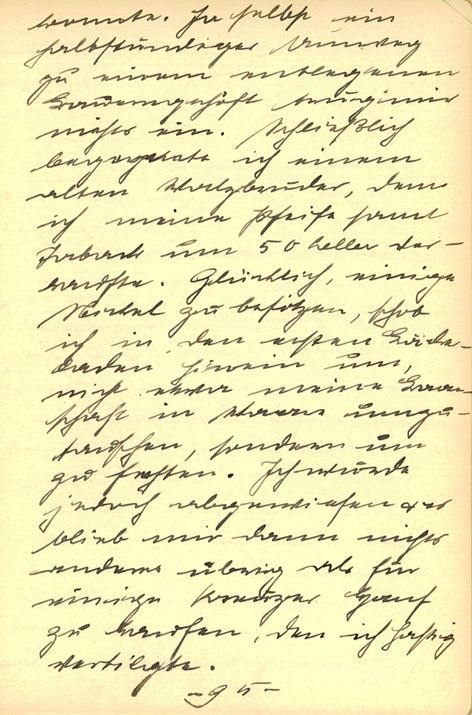 konnte. Ja selbst ein
halbstündiger Umweg
zu einem entlegenen
Bauerngehöft trug mir
nichts ein. Schließlich
begegnete ich einem
alten Walzbruder, dem
ich meine Pfeife samt
Taback um 50 heller ver-
kaufte. Glücklich, einige
Nickel zu besitzen, schob
ich in den ersten
laden hinein um,
nicht etwa meine Baar-
schaft in Waare umzu-
tauschen, sondern um
zu fechten. Ich wurde
jedoch abgewiesen & es
blieb mir dann nichts
anderes übrig als für
einige Kreuzer
zu kaufen, den ich hastig
vertilgte.
-95-